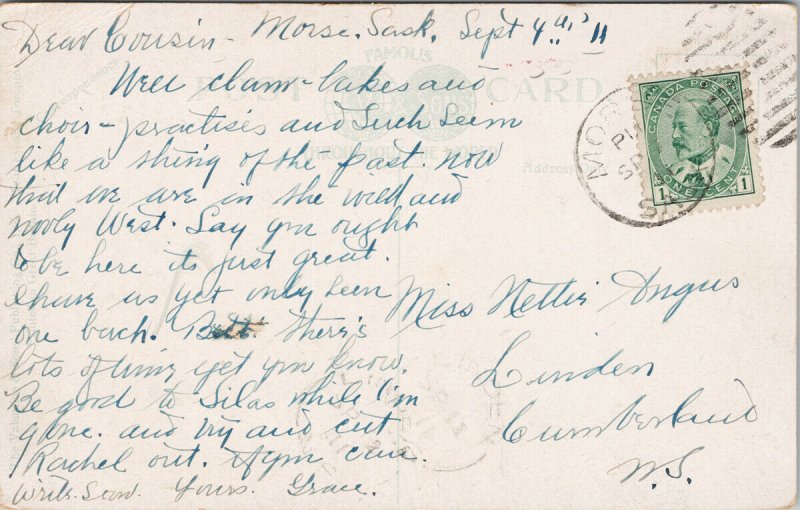 Dear Cousin - Morse, Sask, Sept 4th, 11
Well clam-bakes and
choir-practises and Such Seem
like a thing of the past. now
that we are in the wild and
wooly West. Say you ought
to be here its just great.
I have us yet only Seen
one bach. But. there's
lots of time yet you know.
Be good to Silas while I'm
gone. and try and cut
Rachel out. if you can.
Write Soon. Yours. Grace.
FAMOUS
POST CARD
THROUGHOUT THE WORLD
Correspondence
Address
CANADA POSTAGE
1 ONE CENT 1
MORSE
PM
SASK
Miss Nettie Angus
Linden
Cumberland
N.S.
LINDEN